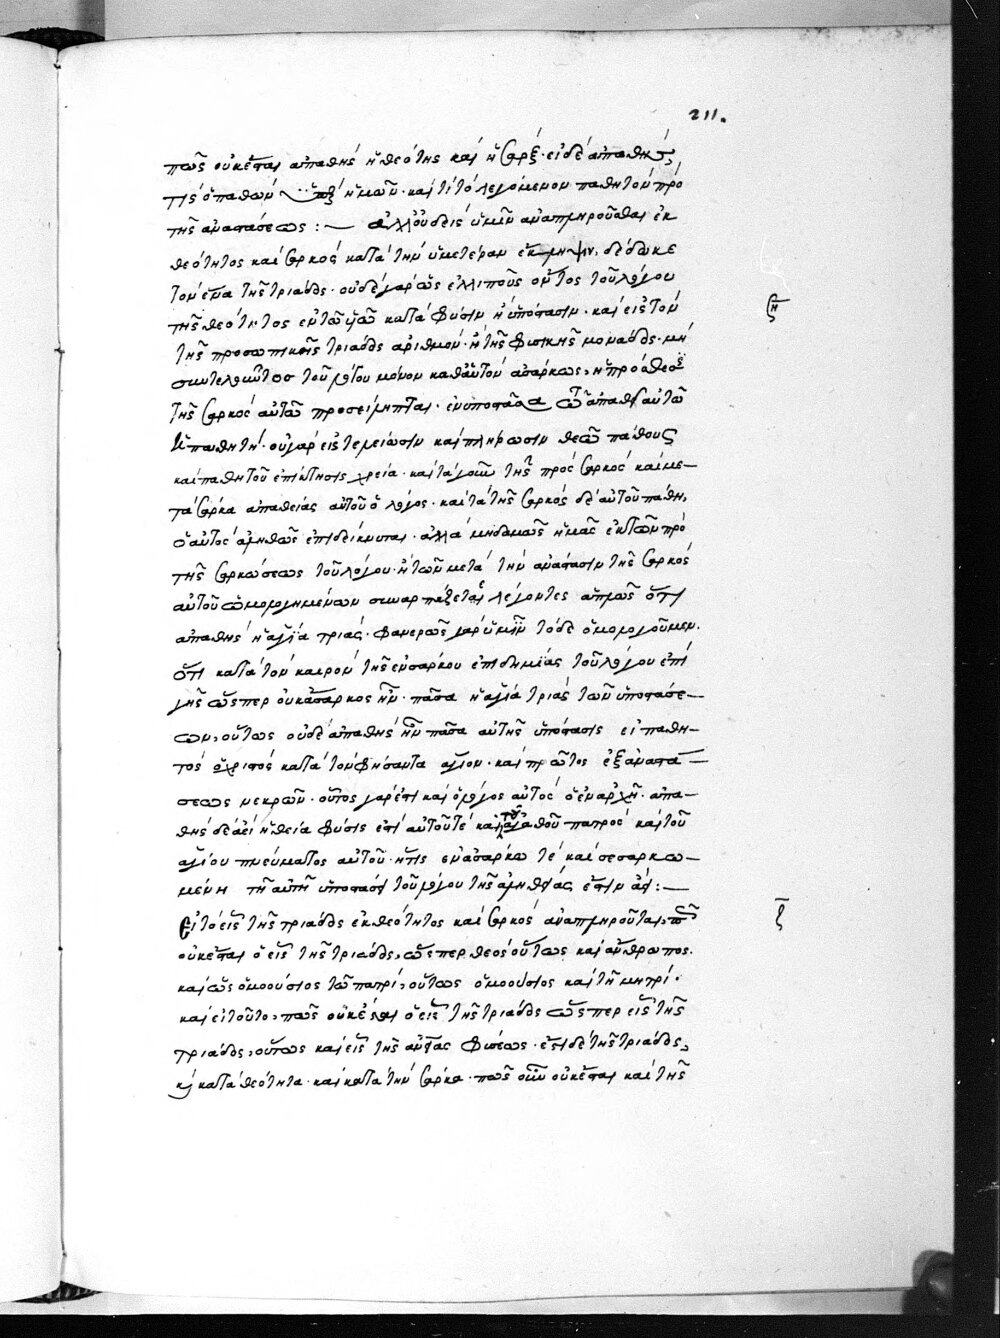 211.
πῶς οὐκ ἔσται ἀπαθὴς ἡ θεότης καὶ ἡ σάρξ· εἰ δὲ ἀπαθὴς,
τίς ὁ παθὼν ὑπὲρ ἡμῶν· καὶ τί τὸ λεγόμενον παθητὸν πρὸ
τῆς ἀναστάσεως :— ἀλλ' οὐδεὶς ὑμῖν ἀναπληροῦσθαι ἐκ
θεότητος καὶ σαρκὸς κατὰ τὴν ὑμετέραν ἔκληψιν, δέδωκε
τὸν ἕνα τῆς τριάδος· οὐδὲ γὰρ ὡς ἐλλιποῦς ὄντος τοῦ λόγου
τῆς θεότητος ἐν τῶ κατὰ φύσιν ἢ ὑπόστασιν· καὶ εἰς τὸν
ζη
τῆς προσωπικῆς τριάδος ἀριθμὸν· ἢ τῆς φυσικῆς μονάδος· μὴ
συντελοῦντος τοῦ λόγου μόνον καθ' αὑτὸν ἀσάρκως, ἡ πρόσθεσις
τῆς σαρκὸς αὐτῶ προσείληπται· ἐνυποστᾶσα τῶ ἀπαθεῖ αὐτῶ
ἡ παθητὴ· οὐ γὰρ εἰς τελείωσιν καὶ πλήρωσιν θεῶ πάθους
καὶ παθητοῦ ἐπίκτησις χρεία· καὶ τὰ γοῦν τῆς πρὸ σαρκὸς καὶ με–
τὰ σάρκα ἀπαθείας αὐτοῦ ὁ λόγος· καὶ τὰ τῆς σαρκὸς δὲ αὐτοῦ πάθη,
ὁ αὐτὸς ἀληθῶς ἐπιδείκνυται· ἀλλὰ μηδαμῶς ἡμᾶς ἐκ τῶν πρὸ
τῆς σαρκώσεως τοῦ λόγου· ἢ τῶν μετὰ τὴν ἀνάστασιν τῆς σαρκὸς
αὐτοῦ ὡμολογημένων συναρπάζετε λέγοντες ἁπλῶς ὅτι
ἀπαθὴς ἡ ἁγία τριάς· φανερῶς γὰρ ὑμῖν τόδε ὁμολογοῦμεν.
ὅτι κατὰ τὸν καιρὸν τῆς ἐνσάρκου ἐπιδημίας τοῦ λόγου ἐπὶ
γῆς ὥσπερ οὐκ ἄσαρκος ἦν· πᾶσα ἡ ἁγία τριὰς τῶν ὑποστάσε–
ων, οὕτως οὐδὲ ἀπαθὴς ἦν πᾶσα αὐτῆς ὑπόστασις εἰ παθη–
τὸς ὁ χριστὸς κατὰ τὸν φήσαντα ἅγιον· καὶ πρῶτος ἐξ ἀναστά–
σεως νεκρῶν· οὗτος γὰρ ἐστι καὶ ὁ λόγος αὐτὸς ὁ ἐν ἀρχῆ· ἀπα–
θὴς δὲ ἀεὶ ἡ θεία φύσις ἐστὶ αὐτοῦ τὲ καὶ τοῦ ἀγαθοῦ πατρὸς καὶ τοῦ
ἁγίου πνεύματος αὐτοῦ· ἥτις ἐν ἀσάρκω τὲ καὶ σεσαρκω–
μένη τῆ αὐτῆ ὑποστάσει τοῦ λόγου τῆς ἀληθείας ἐστὶν ἀεί :—
ζ
Εἰ τὸ εἷς τῆς τριάδος ἐκ θεότητος καὶ σαρκὸς ἀναπληροῦται, πῶς
οὐκ ἔσται ὁ εἷς τῆς τριάδος, ὥσπερ θεὸς οὕτως καὶ ἄνθρωπος.
καὶ ὡς ὁμοούσιος τῶ πατρὶ, οὕτως ὁμοούσιος καὶ τῆ μητρὶ.
καὶ εἰ τοῦτο, πῶς οὐκ ἔσται ὁ εἷς τῆς τριάδος ὥσπερ εἷς τῆς
τριάδος, οὕτως καὶ εἷς τῆς αὐτῆς φύσεως· ἔστι δὲ τῆς τριάδος,
κὶ κατὰ θεότητα· καὶ κατὰ τὴν σάρκα· πῶς οὖν οὐκ ἔσται καὶ τῆς